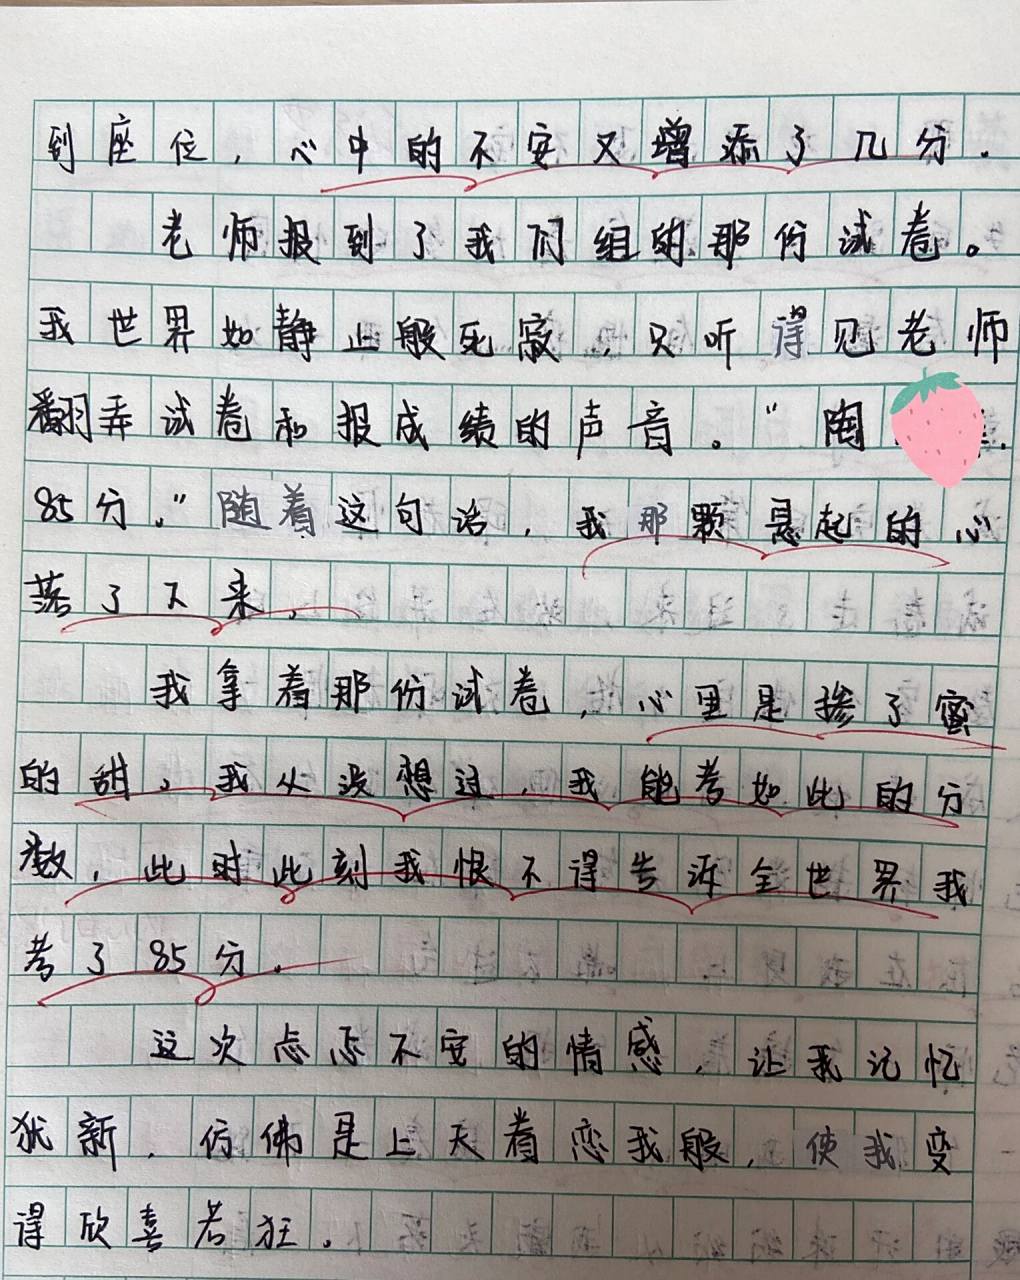 到座位，心中的不安又增添了几分．
老师报到了我们组的那份试卷。
我世界如静止般死寂，只听得见老师
翻弄试卷和报成绩的声音。“陶
85分。”随着这句话，我那颗悬起的心
落了下来．
我拿着那份试卷，心里是掺了蜜
的甜。我从没想过，我能考如此的分
数，此时此刻我恨不得告诉全世界我
考了85分．
这次忐忑不安的情感，让我记忆
犹新，仿佛是上天眷恋我般，使我变
得欣喜若狂。